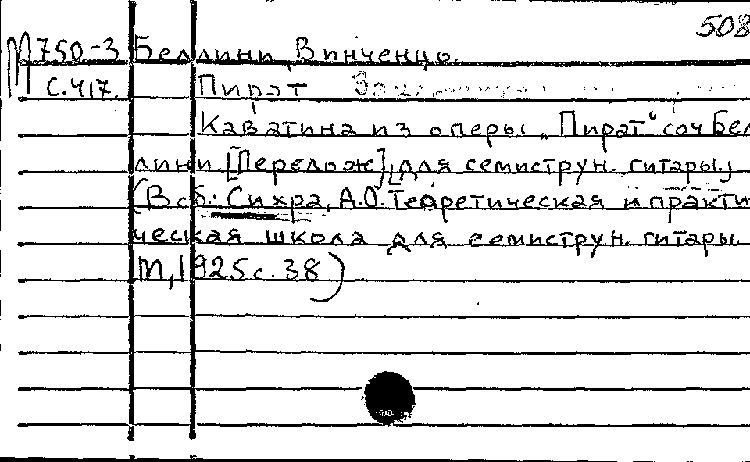 508
М750-3 Беллини, Винченцо.
С.417. Пират
Каватина из оперы „Пират“ соч Бел
лини [Перелож] для семиструн. гитары.
(В сб.: Сихра, А.О. Теоретическая и практи
ческая школа для семиструн. гитары.
М, 1925 с. 38)